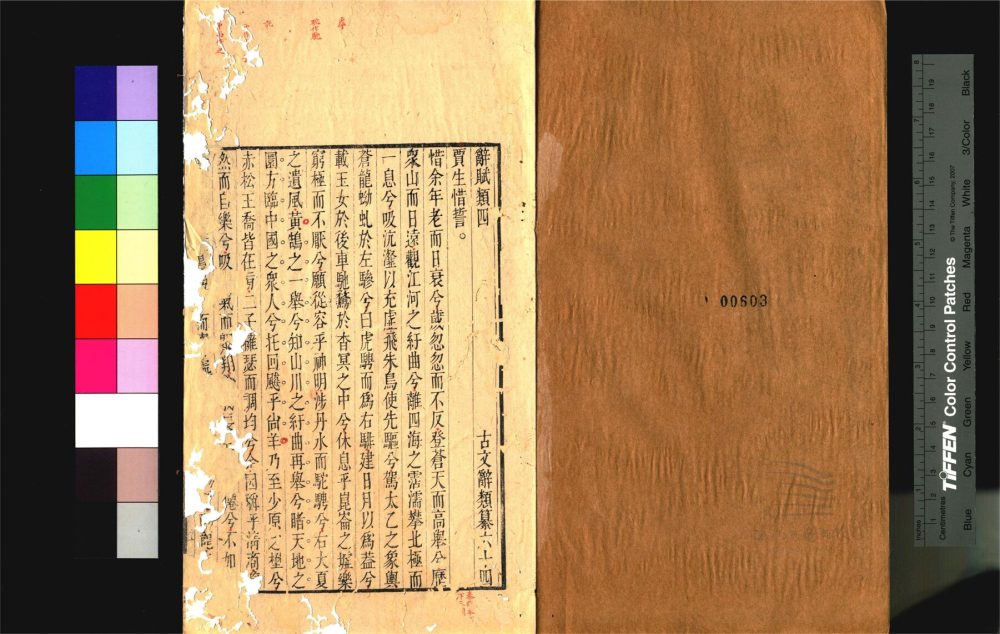 辭賦類四 古文辭類纂六十四
賈生惜誓。
惜余年老而日衰兮歲忽忽而不反登蒼天而高舉兮歷
衆山而日遠觀江河之紆曲兮離四海之霑濡攀北極而
一息兮吸沆瀣以充虛飛朱鳥使先驅兮駕太乙之象輿
蒼龍蚴虬於左驂兮白虎騁而爲右騑建日月以爲蓋兮
載玉女於後車馳騖於杳冥之中兮休息乎崑崙之墟樂
窮極而不厭兮願從容乎神明涉丹水而駝騁兮右大夏
之遺風黃鵠之一舉兮知山川之紆曲再舉兮睹天地之
圜方臨中國之衆人兮托回飈乎尙羊乃至少原之壄兮
赤松王喬皆在旁二子擁瑟而調均兮余因稱乎清商
然而自樂兮吸 氣而翱翔
兮不如
00603
Inches
Centimetres
TIFFEN Color Control Patches
© The Tiffen Company, 2007
Blue Cyan Green Yellow Red Magenta White 3/Color Black